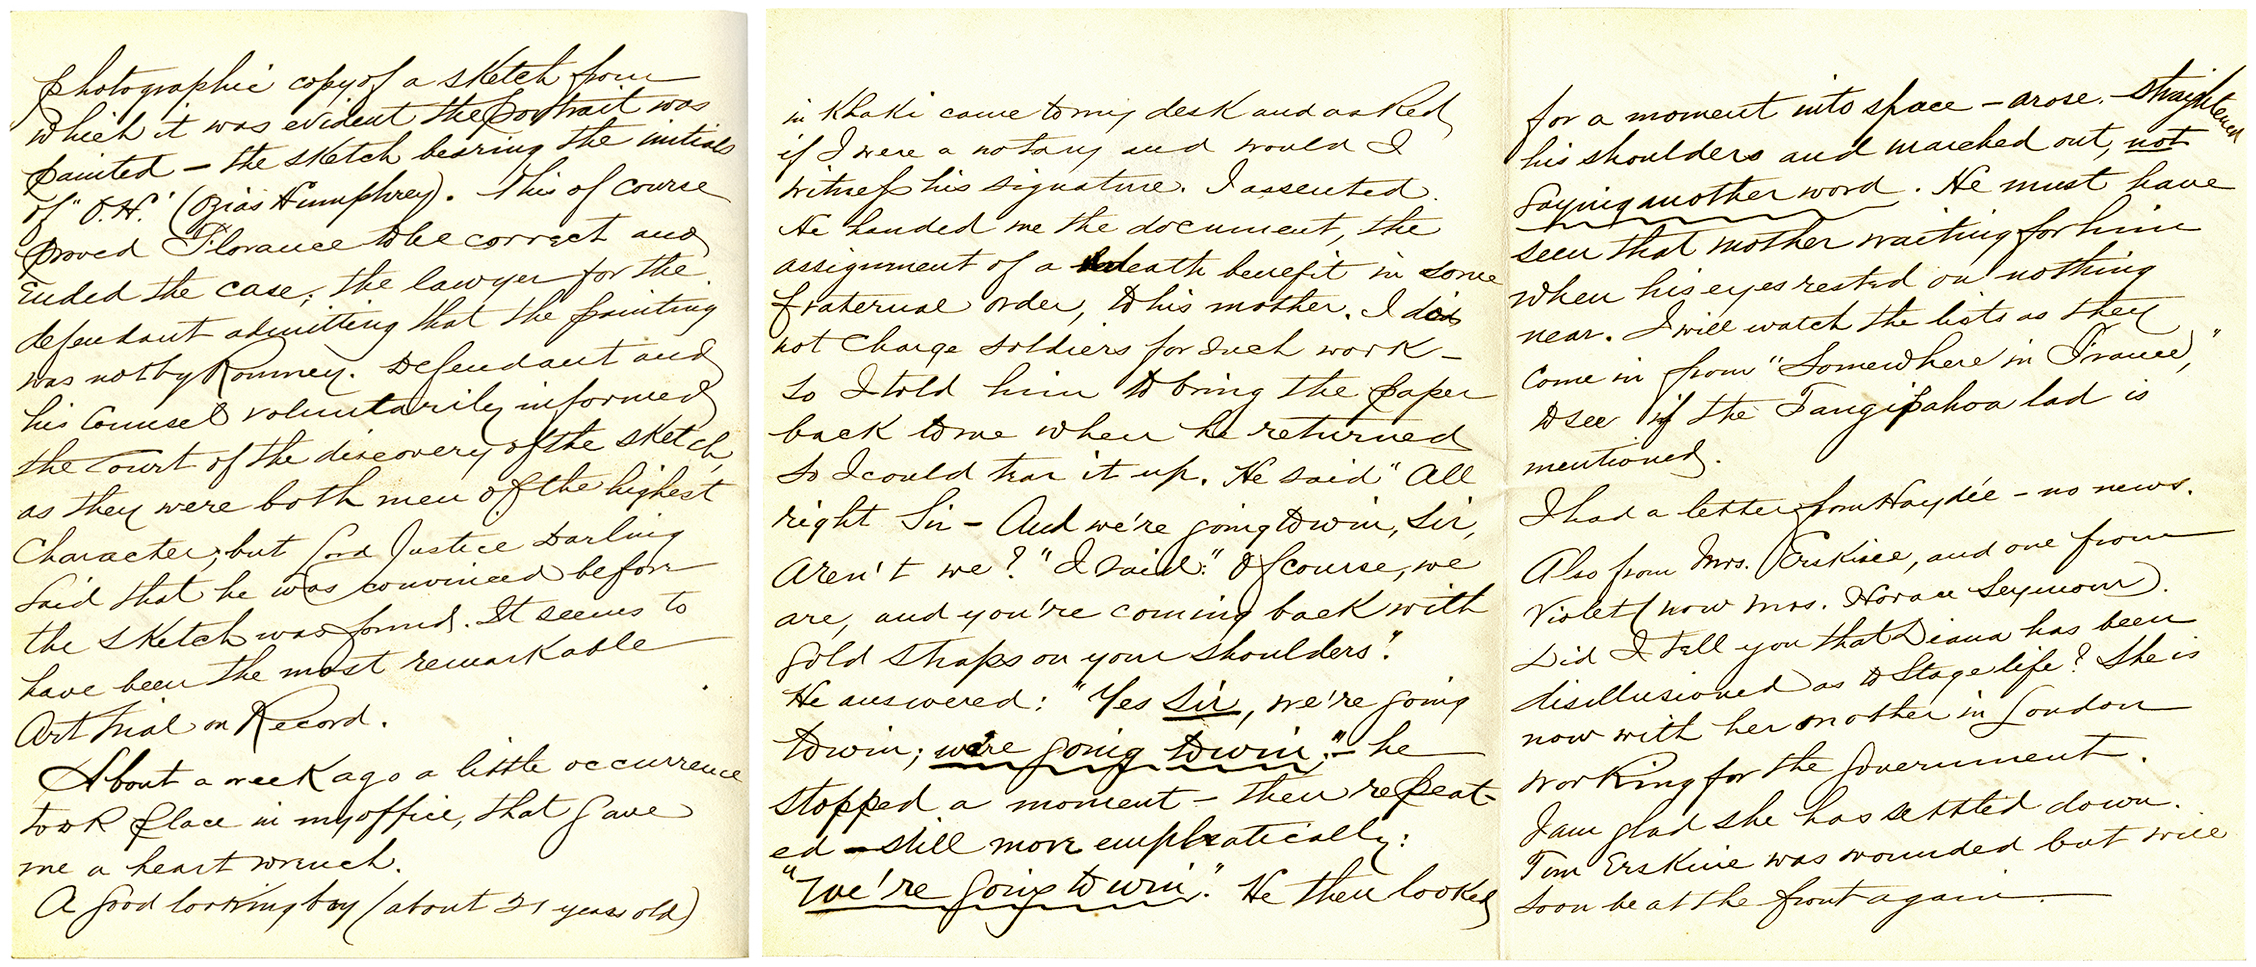 photographic copy of a sketch from
which it was evident the portrait was
painted – the sketch bearing the initials
of "O.H." (Ozias Humphrey). This of course
proved Florance to be correct and
ended the case; the lawyer for the
defendant admitting that the painting
was not by Romney. Defendant and
his Counsel voluntarily informed
the Court of the discovery of the sketch,
as they were both men of the highest
Character; but Lord Justice Darling
said that he was convinced before
the sketch was found. It seems to
have been the most remarkable
Art trial on Record.
About a week ago a little occurrence
took place in my office, that gave
me a heart wrench.
A good looking boy (about 21 years old)
in Khaki came to my desk and asked
if I were a notary and would I
witness his signature. I assented.
He handed me the document, the
assignment of a death benefit in some
fraternal order, to his mother. I do
not charge soldiers for such work –
so I told him to bring the paper
back to me when he returned
so I could tear it up. He said "All
right Sir – And we're going to win, Sir,
aren't we?" I said: "Of course, we
are, and you're coming back with
gold straps on your shoulders".
He answered: "Yes Sir, we're going
to win; we're going to win;" – he
stopped a moment – then repeat-
ed – still more emphatically:
"We're going to win". He then looked
for a moment into space – arose – straightened
his shoulders and marched out, not
saying another word. He must have
seen that mother waiting for him
when his eyes rested on nothing
near. I will watch the lists as they
come in from "Somewhere in France,"
to see if the Tangipahoa lad is
mentioned.
I had a letter from Haydée – no news.
Also from Mrs. Erskine, and one from
Violet (now Mrs. Horace Seymour).
Did I tell you that Diana has been
disillusioned as to Stage life? She is
now with her mother in London
working for the Government.
I am glad she has settled down.
Tom Erskine was wounded but will
soon be at the front again.